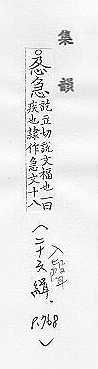 集韻
○㤂急
訖立切說文褊也一曰
疾也隸作急文十八
(二十六緝.
入聲
P.768)